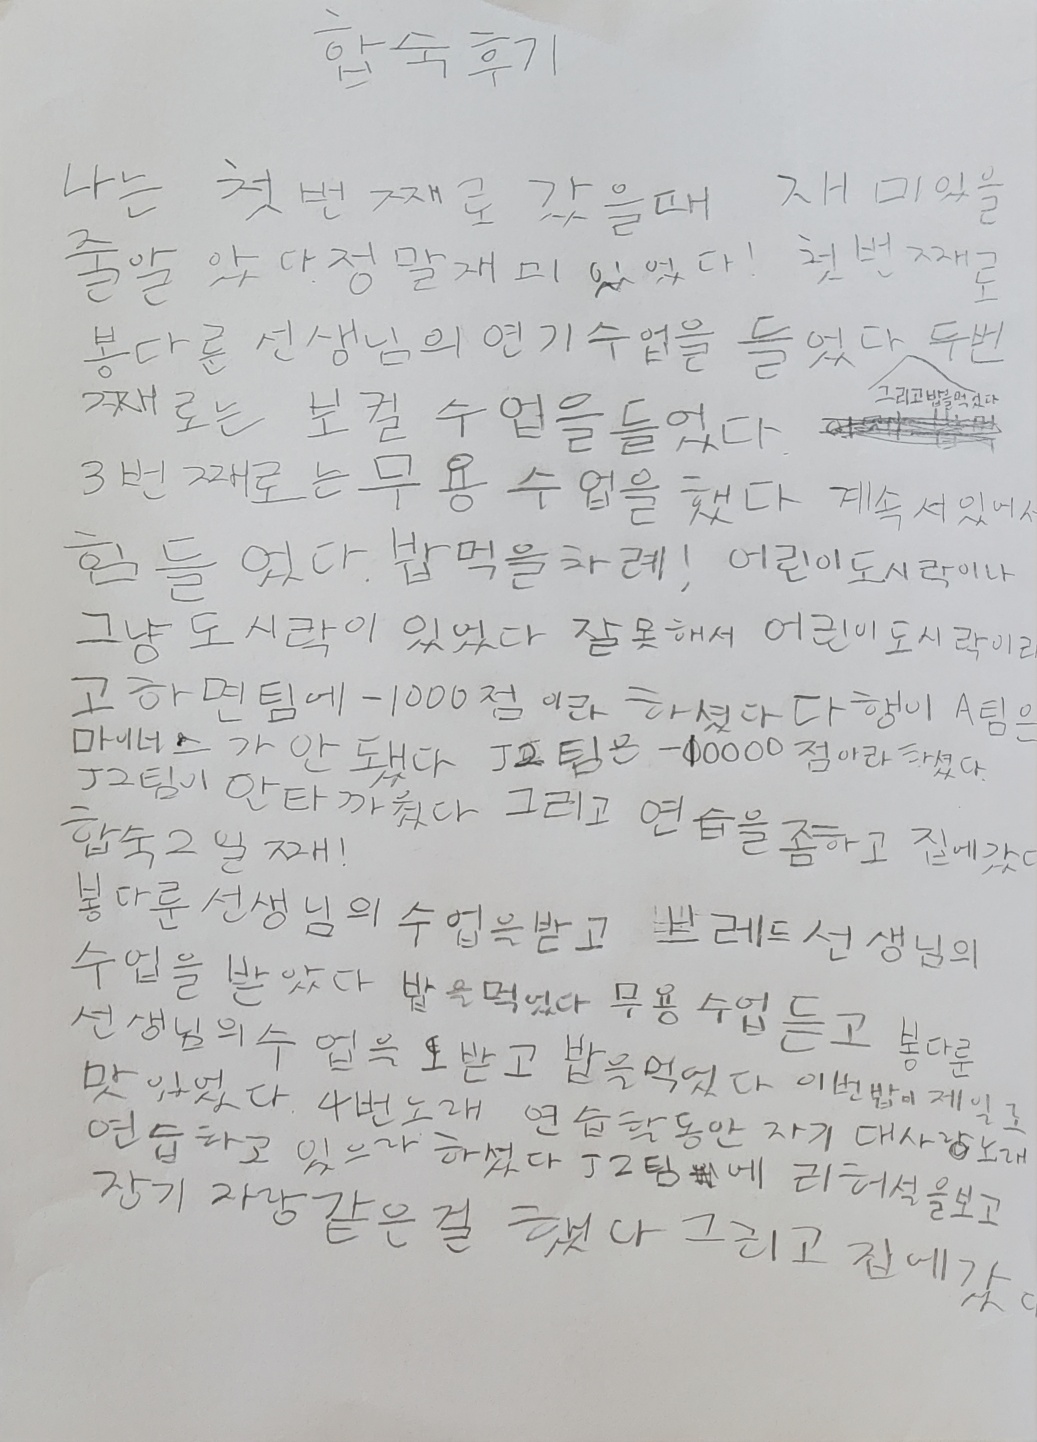 합숙후기
나는 첫번째로 갔을때 재미있을
줄알 았다.정말재미 있었다! 첫번째로
봉다룬 선생님의연기수업을 들었다 두번
째로는 보컬 수업을들었다. 그리고밥을먹었다
3번째로는무용 수업을했다 계속서있어서
힘들었다.밥먹을차례! 어린이도시락이나
그냥도시락이 있었다 잘못해서 어린이도시락이라
고하면팀에 -1000점 이라 하셨다 다행이 A팀은
마이너스가 안됐다 J2팀은 -10000점이라하셨다.
J2팀이 안타까웠다 그리고 연습을좀하고 집에갔다
합숙2일째!
봉다룬선생님의 수업을받고 쁘레드선생님의
수업을 받았다 밥을먹었다 무용수업듣고 봉다룬
선생님의수업을 받고 밥을먹었다 이번밥이 제일로
맛있었다. 4번노래 연습할동안 자기 대사랑노래
연습하고 있으라 하셨다 J2팀에 리허설을보고
장기자랑같은걸 했다 그리고 집에갔다